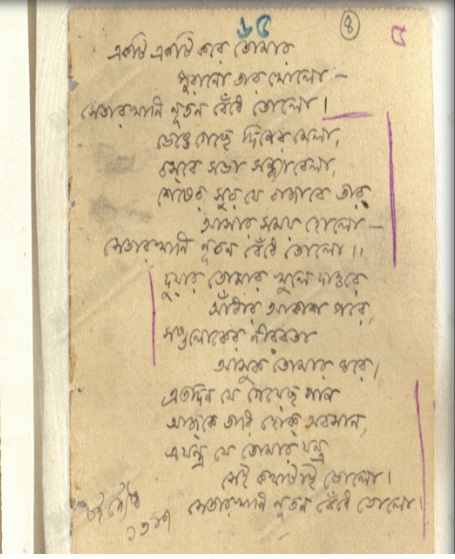 ৬৫ ৪
একটি একটি করে তোমার
পুরানো তার খোলো —
সেতারখানি নূতন বেঁধে তোলো।
ভেঙে গেছে দিনের মেলা,
বসবে সভা সন্ধ্যাবেলা,
শেষের সুর যে বাজাবে তার
আসার সময় হোলো —
সেতারখানি নূতন বেঁধে তোলো।।
দুয়ার তোমার খুলে দাওরে
আঁধার আকাশ পরে,
সপ্তলোকের নীরবতা
আসুক তোমার ঘরে।
এতদিন যে গেয়েছ গান
আজকে তারি হোক্ অবসান,
এ যন্ত্র যে তোমার যন্ত্র
সেই কথাটাই ভোলো।
সেতারখানি নূতন বেঁধে তোলো।